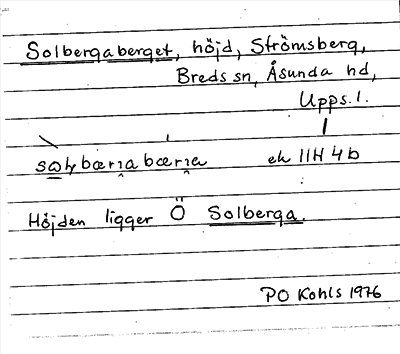 Solbergaberget, höjd, Strömsberg,
Breds sn, Åsunda hd,
Upps. l.
ek 11H 4b
Höjden ligger Ö Solberga.
PO Kohls 1976